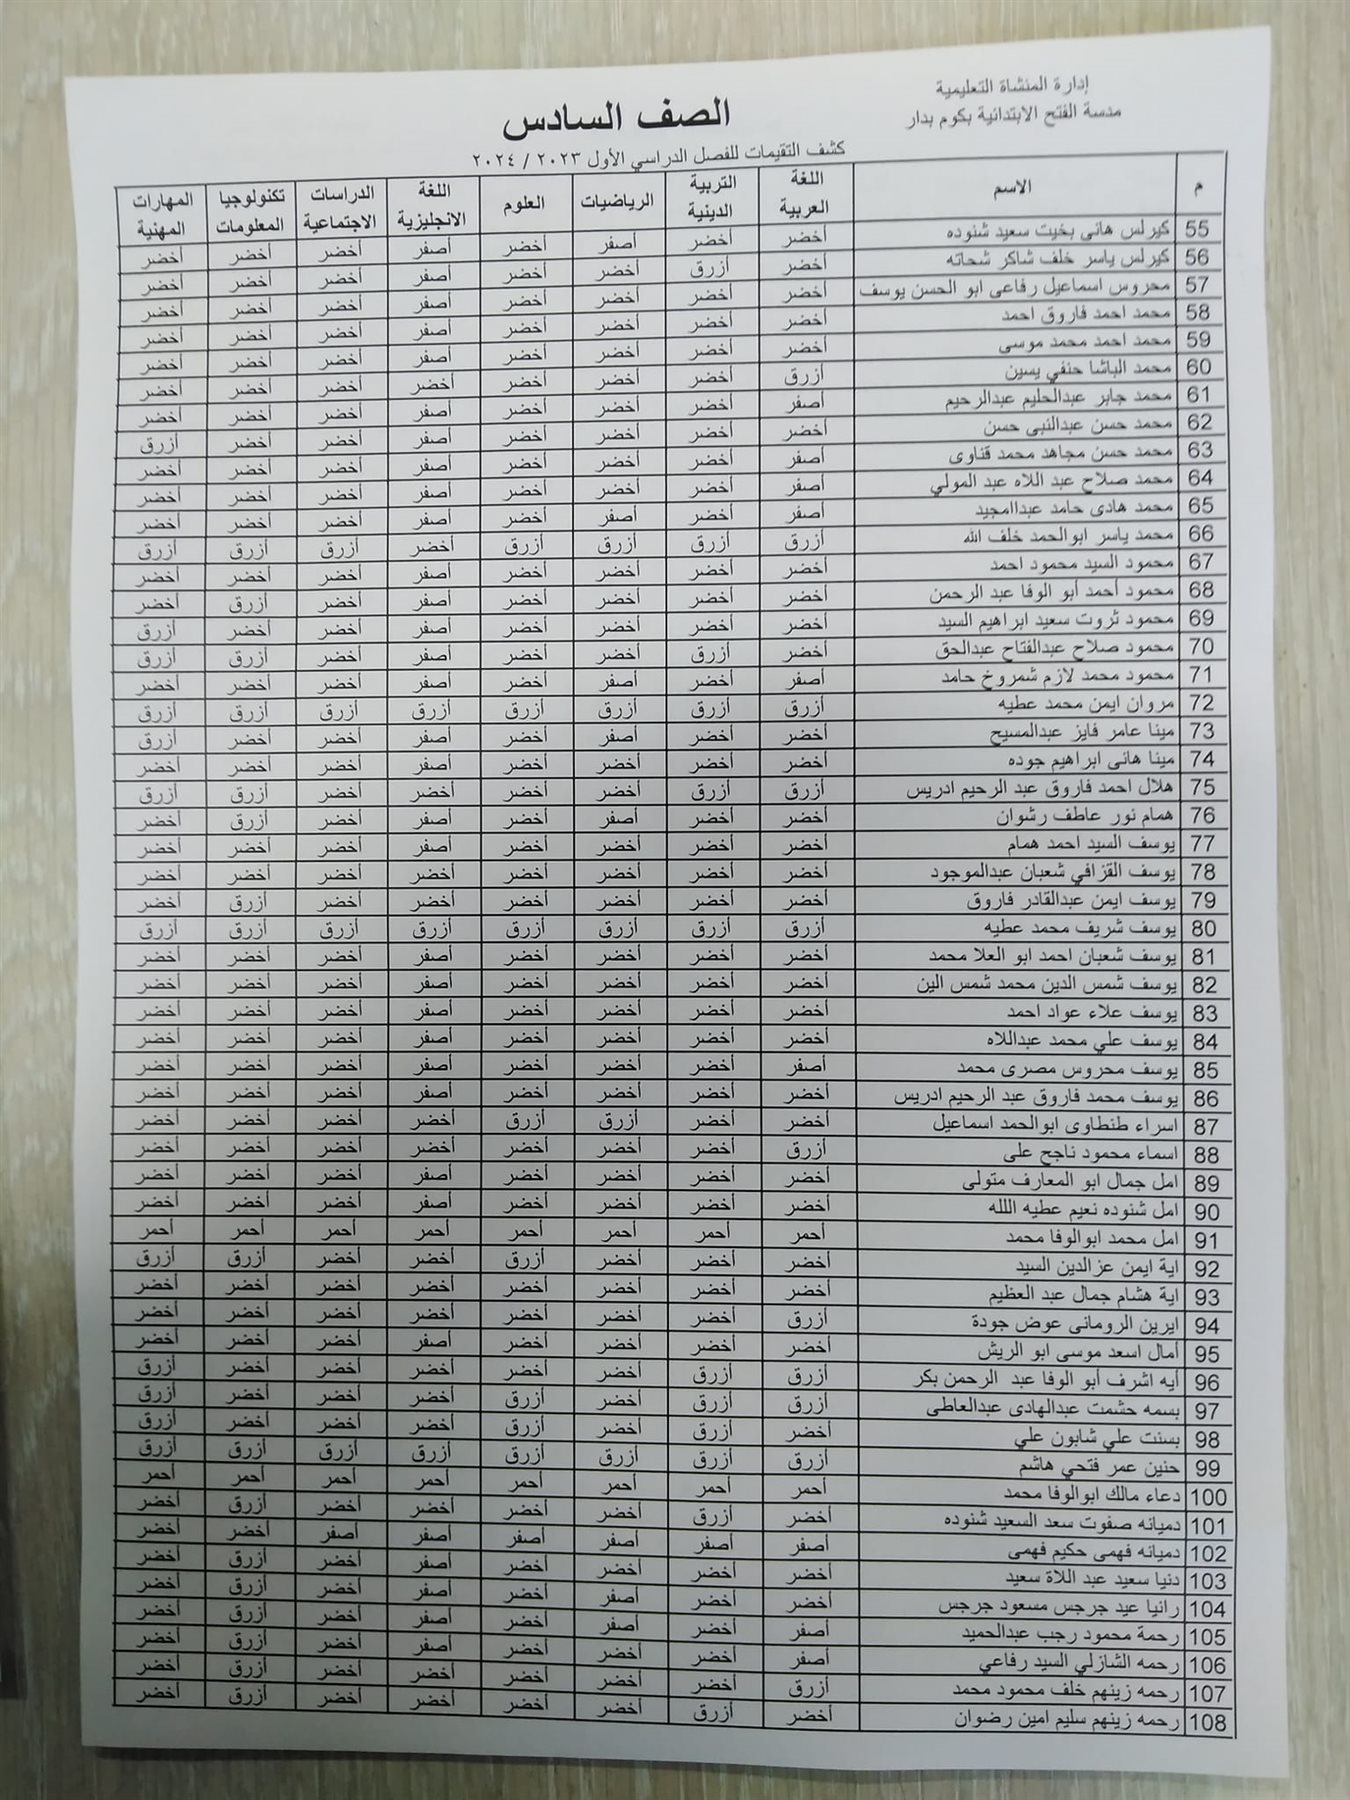 إدارة المنشاة التعليمية
مدسة الفتح الابتدائية بكوم بدار
الصف السادس
كشف التقيمات للفصل الدراسي الأول ٢٠٢٣ / ٢٠٢٤
م الاسم اللغة العربية التربية الدينية الرياضيات العلوم اللغة الانجليزية الدراسات الاجتماعية تكنولوجيا المعلومات المهارات المهنية
55 كيرلس هانى بخيت سعيد شنوده أخضر أخضر أصفر أخضر أصفر أخضر أخضر أخضر
56 كيرلس ياسر خلف شاكر شحاته أخضر أزرق أخضر أخضر أصفر أخضر أخضر أخضر
57 محروس اسماعيل رفاعى ابو الحسن يوسف أخضر أخضر أخضر أخضر أصفر أخضر أخضر أخضر
58 محمد احمد فاروق احمد أخضر أخضر أخضر أخضر أصفر أخضر أخضر أخضر
59 محمد احمد محمد موسى أخضر أخضر أخضر أخضر أصفر أخضر أخضر أخضر
60 محمد الباشا حنفي يسين أزرق أخضر أخضر أخضر أخضر أخضر أخضر أخضر
61 محمد جابر عبدالحليم عبدالرحيم أصفر أخضر أخضر أخضر أصفر أخضر أخضر أخضر
62 محمد حسن عبدالنبى حسن أخضر أخضر أخضر أخضر أصفر أخضر أخضر أزرق
63 محمد حسن مجاهد محمد قناوى أصفر أخضر أخضر أخضر أصفر أخضر أخضر أخضر
64 محمد صلاح عبد اللاه عبد المولي أصفر أخضر أخضر أخضر أصفر أخضر أخضر أخضر
65 محمد هادى حامد عبداامجيد أصفر أخضر أصفر أخضر أصفر أخضر أخضر أخضر
66 محمد ياسر ابوالحمد خلف الله أزرق أزرق أزرق أزرق أخضر أزرق أزرق أزرق
67 محمود السيد محمود احمد أخضر أخضر أخضر أخضر أصفر أخضر أخضر أخضر
68 محمود أحمد أبو الوفا عبد الرحمن أخضر أخضر أخضر أخضر أصفر أخضر أزرق أخضر
69 محمود ثروت سعيد ابراهيم السيد أخضر أخضر أخضر أخضر أصفر أخضر أخضر أزرق
70 محمود صلاح عبدالفتاح عبدالحق أخضر أزرق أخضر أخضر أصفر أخضر أزرق أزرق
71 محمود محمد لازم شمروخ حامد أصفر أخضر أصفر أخضر أصفر أخضر أخضر أخضر
72 مروان ايمن محمد عطيه أزرق أزرق أزرق أزرق أزرق أزرق أزرق أزرق
73 مينا عامر فايز عبدالمسيح أخضر أخضر أصفر أخضر أصفر أخضر أخضر أزرق
74 مينا هانى ابراهيم جوده أخضر أخضر أخضر أخضر أصفر أخضر أخضر أخضر
75 هلال احمد فاروق عبد الرحيم ادريس أزرق أزرق أخضر أخضر أخضر أخضر أزرق أزرق
76 همام نور عاطف رشوان أخضر أخضر أصفر أخضر أصفر أخضر أزرق أخضر
77 يوسف السيد احمد همام أخضر أخضر أخضر أخضر أخضر أخضر أخضر أخضر
78 يوسف القزافي شعبان عبدالموجود أخضر أخضر أخضر أخضر أخضر أخضر أخضر أخضر
79 يوسف ايمن عبدالقادر فاروق أخضر أخضر أخضر أخضر أخضر أخضر أزرق أخضر
80 يوسف شريف محمد عطيه أزرق أزرق أزرق أزرق أزرق أزرق أزرق أزرق
81 يوسف شعبان احمد ابو العلا محمد أخضر أخضر أخضر أخضر أصفر أخضر أخضر أخضر
82 يوسف شمس الدين محمد شمس الين أخضر أخضر أخضر أخضر أصفر أخضر أخضر أخضر
83 يوسف علاء عواد احمد أخضر أخضر أخضر أخضر أخضر أخضر أخضر أخضر
84 يوسف علي محمد عبداللاه أخضر أخضر أخضر أخضر أخضر أخضر أخضر أخضر
85 يوسف محروس مصرى محمد أصفر أخضر أخضر أخضر أصفر أخضر أخضر أخضر
86 يوسف محمد فاروق عبد الرحيم ادريس أخضر أخضر أخضر أخضر أصفر أخضر أخضر أخضر
87 اسراء طنطاوى ابوالحمد اسماعيل أخضر أخضر أزرق أزرق أخضر أخضر أخضر أخضر
88 اسماء محمود ناجح على أزرق أخضر أخضر أخضر أخضر أخضر أخضر أخضر
89 امل جمال ابو المعارف متولى أخضر أخضر أخضر أخضر أصفر أخضر أخضر أخضر
90 امل شنوده نعيم عطيه اللله أخضر أخضر أخضر أخضر أصفر أخضر أخضر أخضر
91 امل محمد ابوالوفا محمد أحمر أحمر أحمر أحمر أحمر أحمر أحمر أحمر
92 اية ايمن عزالدين السيد أخضر أخضر أخضر أزرق أخضر أخضر أزرق أزرق
93 اية هشام جمال عبد العظيم أخضر أخضر أخضر أخضر أخضر أخضر أخضر أخضر
94 ايرين الرومانى عوض جودة أزرق أخضر أخضر أخضر أخضر أخضر أخضر أخضر
95 أمال اسعد موسى ابو الريش أخضر أخضر أخضر أخضر أصفر أخضر أخضر أخضر
96 أيه اشرف أبو الوفا عبد الرحمن بكر أزرق أزرق أخضر أخضر أخضر أخضر أخضر أزرق
97 بسمه حشمت عبدالهادى عبدالعاطى أزرق أزرق أخضر أزرق أخضر أخضر أخضر أزرق
98 بسنت علي شابون علي أخضر أزرق أخضر أزرق أخضر أخضر أخضر أزرق
99 حنين عمر فتحي هاشم أزرق أزرق أزرق أزرق أزرق أزرق أزرق أزرق
100 دعاء مالك ابوالوفا محمد أحمر أحمر أحمر أحمر أحمر أحمر أحمر أحمر
101 دميانه صفوت سعد السعيد شنوده أخضر أزرق أخضر أخضر أخضر أخضر أزرق أخضر
102 دميانه فهمى حكيم فهمى أصفر أصفر أصفر أصفر أصفر أصفر أخضر أخضر
103 دنيا سعيد عبد اللاة سعيد أخضر أخضر أخضر أخضر أصفر أخضر أزرق أخضر
104 رانيا عيد جرجس مسعود جرجس أخضر أخضر أصفر أخضر أصفر أخضر أزرق أخضر
105 رحمة محمود رجب عبدالحميد أصفر أخضر أصفر أخضر أصفر أخضر أزرق أخضر
106 رحمه الشازلي السيد رفاعي أصفر أخضر أخضر أخضر أصفر أخضر أزرق أخضر
107 رحمه زينهم خلف محمود محمد أزرق أخضر أخضر أخضر أخضر أخضر أزرق أخضر
108 رحمه زينهم سليم امين رضوان أخضر أزرق أخضر أخضر أخضر أخضر أزرق أخضر